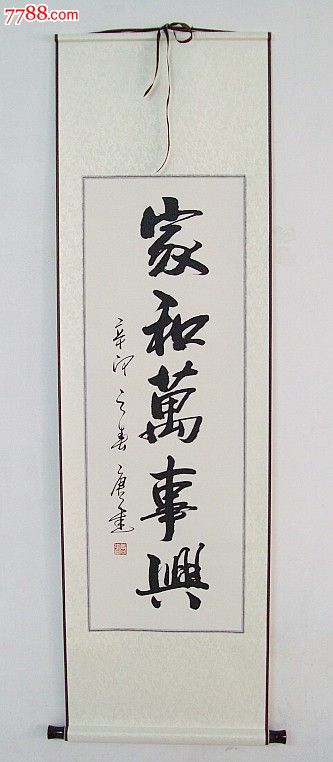 7788.com
家和萬事興
辛卯之春